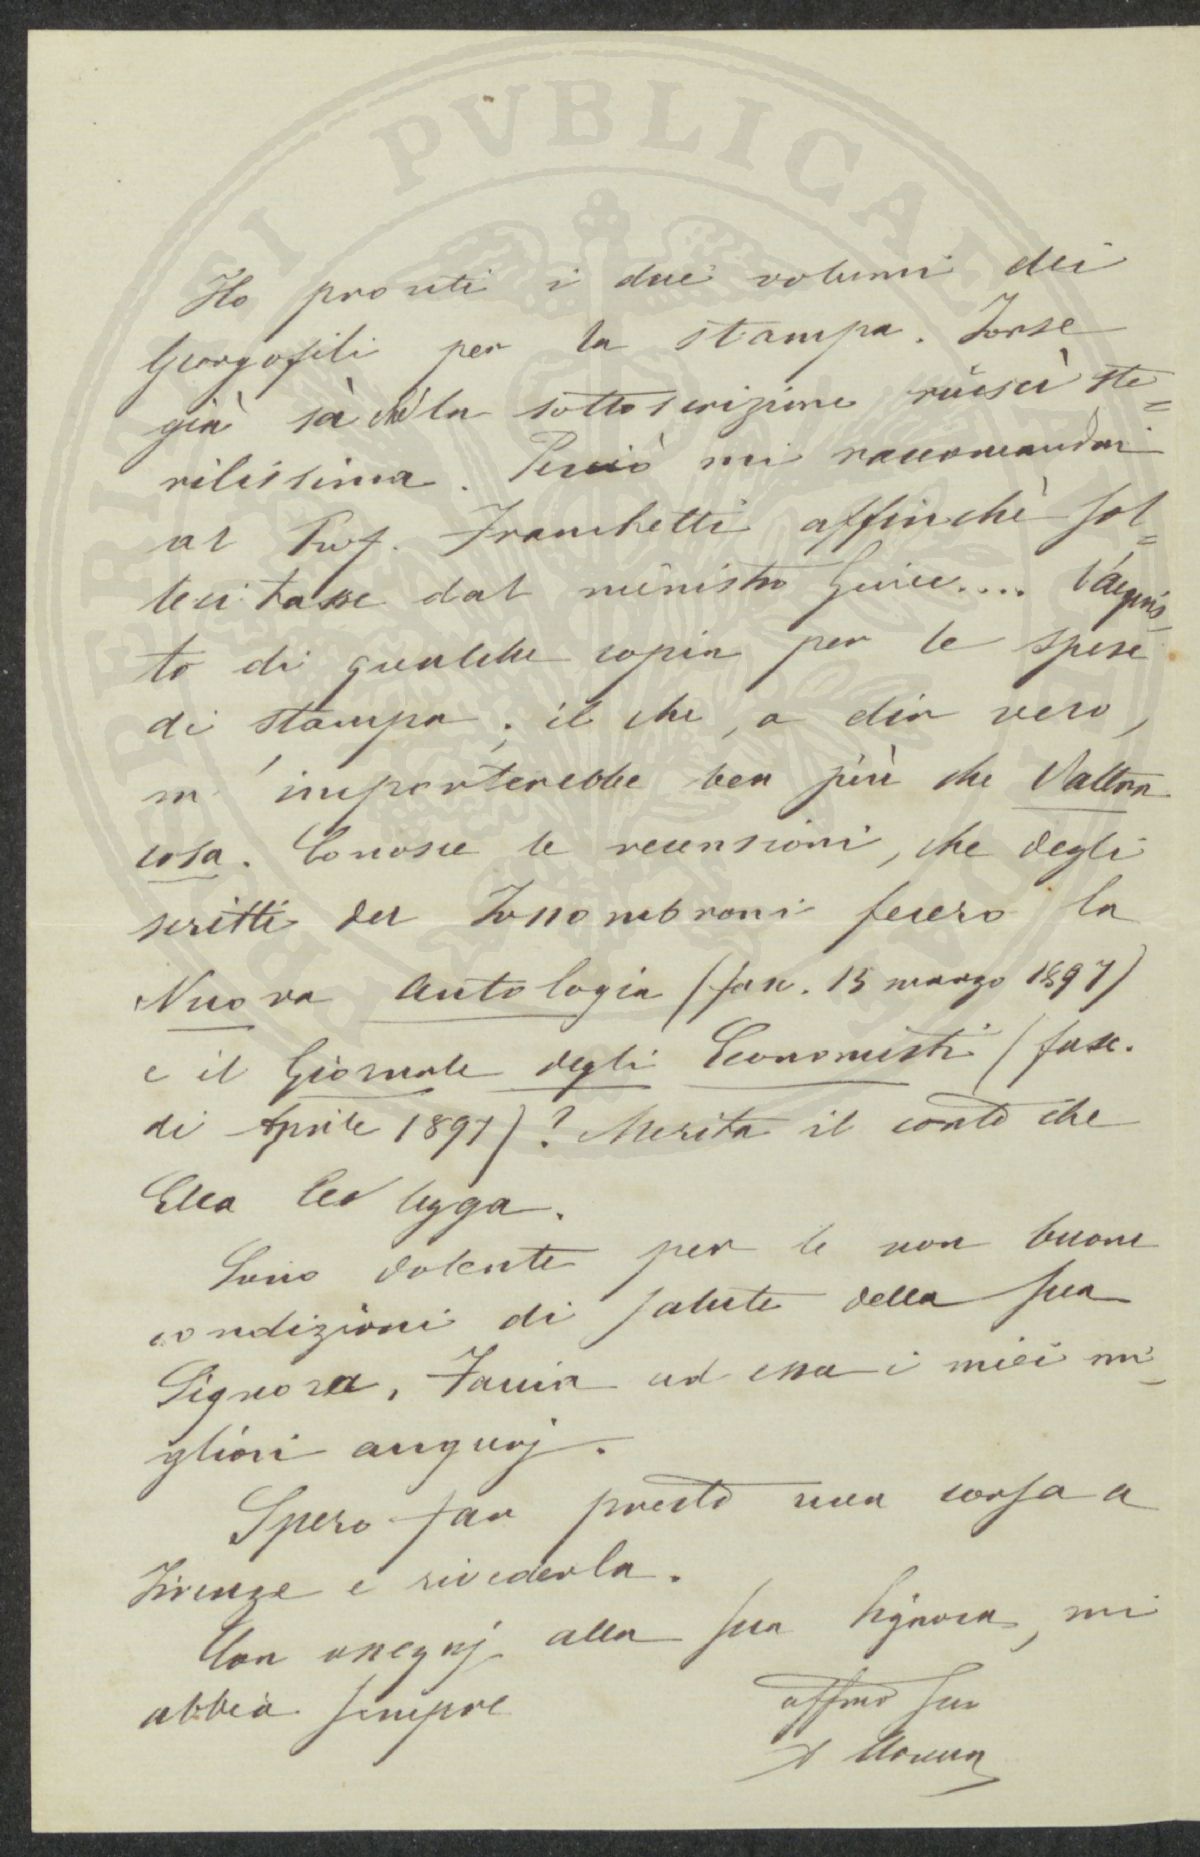 PERUSI PUBLICAE AUGUSTA
Ho pronti i due volumi dei
Georgofili per la stampa. Forse
già sà chè la sottoscrizione riuscì ste=
rilissima. Perciò mi raccomandai
al Prof. Franchetti affinchè sol=
lecitasse dal ministro Guicc.... l'acquis-
to di qualche copia per le spese
di stampa; il che, a dir vero,
m'importerebbe ben più che l'altra
cosa. Conosce le recensioni, che degli
scritti del Fossombroni fecero la
Nuova Antologia (fasc. 15 marzo 1897)
e il Giornale degli Economisti (fasc.
di Aprile 1897)? Merita il conto che
Ella le legga.
Sono dolente per le non buone
condizioni di salute della sua
Signora. Faccia ad essa i miei mi-
gliori augurj.
Spero far presto una corsa a
Firenze e rivederla.
Con ossequj alla sua Signora, mi
abbia sempre
affmo suo